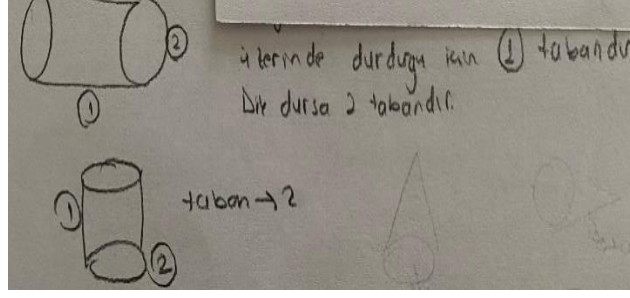 üterinde durduğu için ① tabandır
②
①
Dik dursa 2 tabandır.
①
taban → 2
②